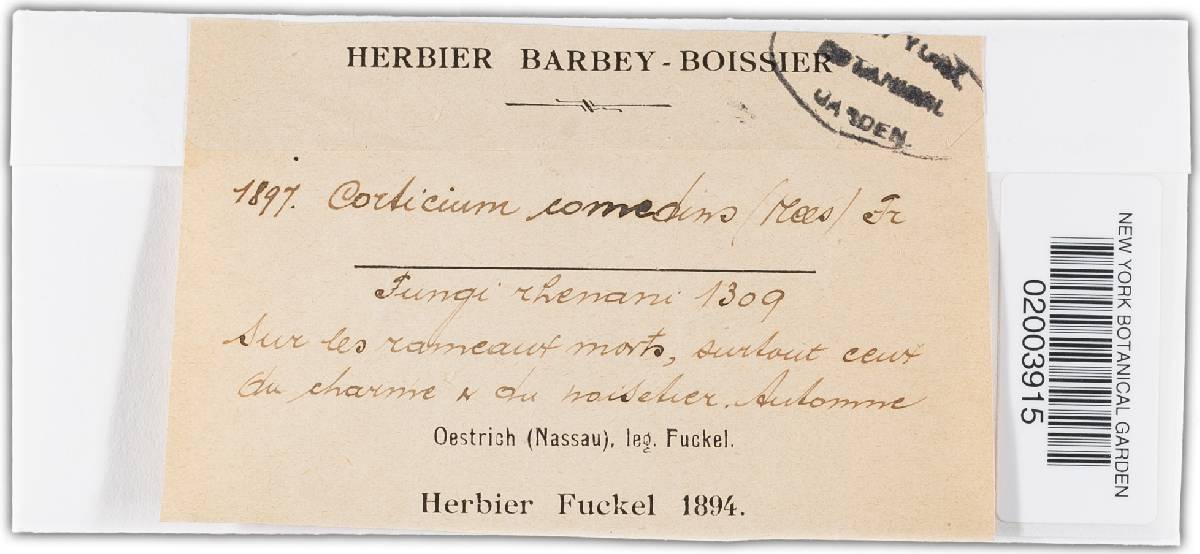 HERBIER BARBEY-BOISSIER
YORK
BOTANICAL
GARDEN
1897. Corticium comedens (Nees) Fr
Fungi rhenani 1309
Sur les rameaux morts, surtout ceux
du charme & du noisetier. Automne
Oestrich (Nassau), leg. Fuckel.
Herbier Fuckel 1894.
NEW YORK BOTANICAL GARDEN
02003915